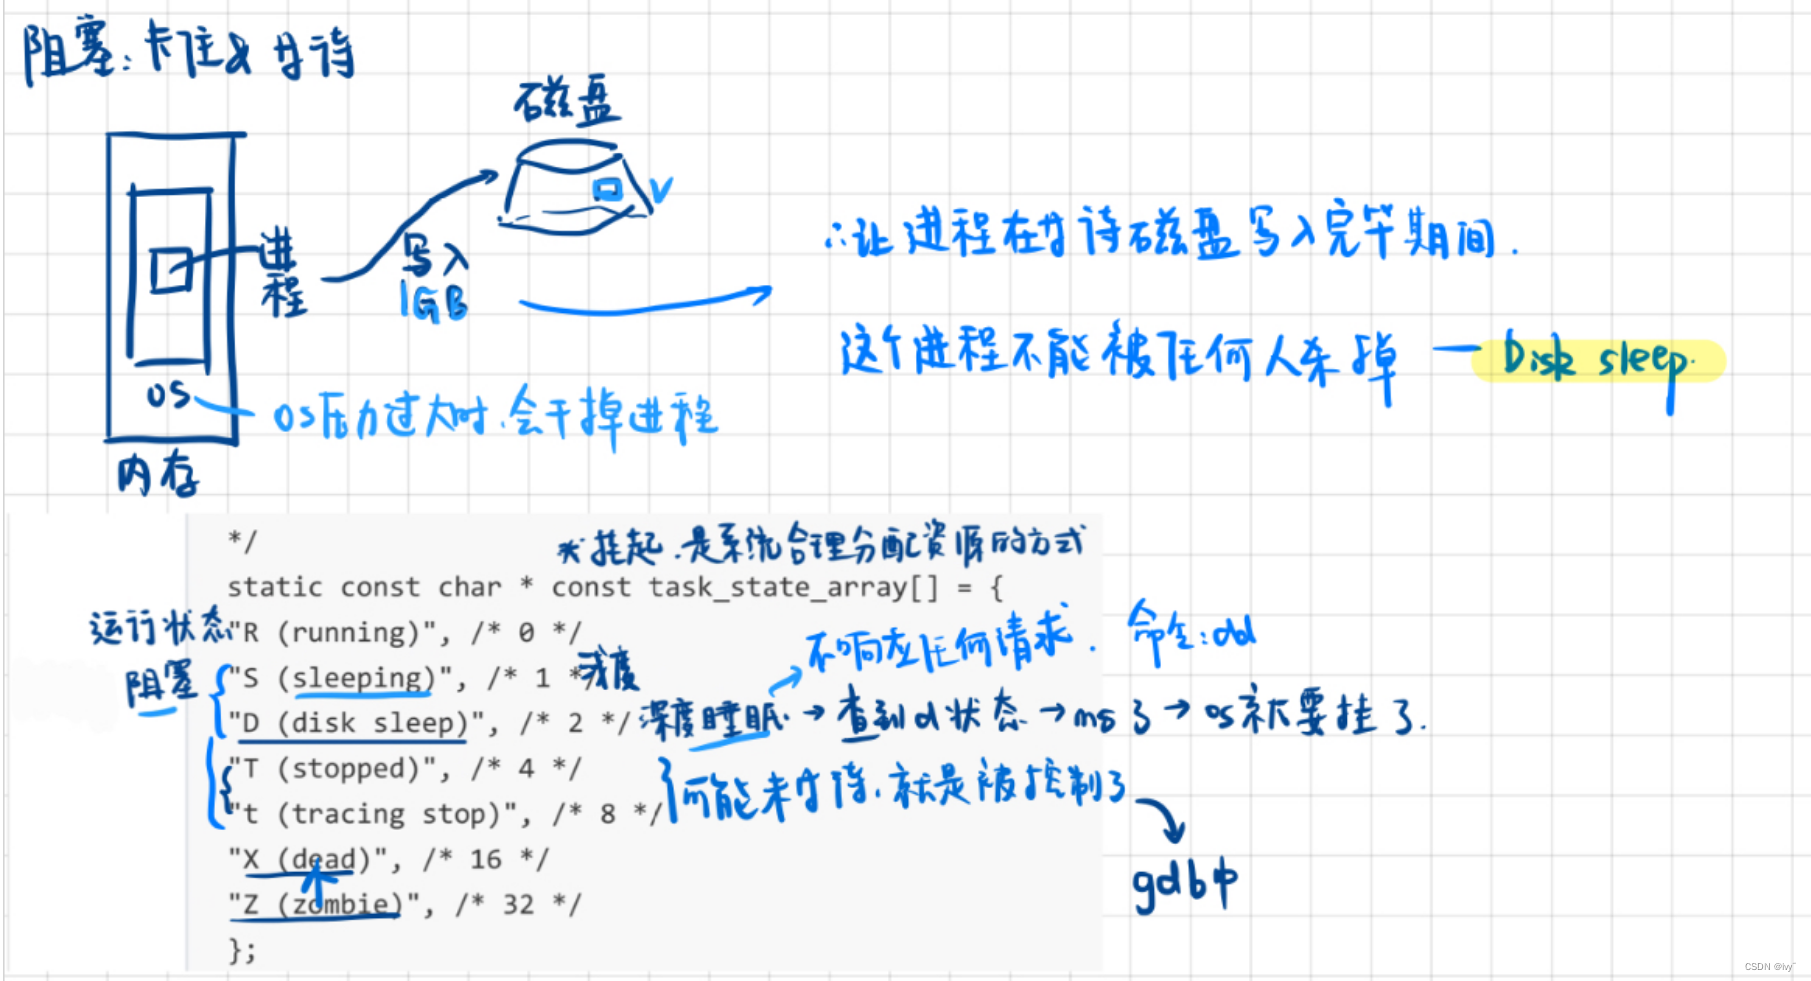 阻塞:卡住 & 等待
磁盘
进程
写入
1GB
∴让进程在等待磁盘写入完毕期间.
这个进程不能被任何人杀掉 — Disk sleep.
OS — OS压力过大时.会干掉进程
内存
*/
*挂起.是系统合理分配资源的方式
static const char * const task_state_array[] = {
运行状态 "R (running)", /* 0 */
不响应任何请求. 命令:dd
阻塞 "S (sleeping)", /* 1 */ 浅度
"D (disk sleep)", /* 2 */ 深度睡眠 → 查到d状态 → ms了 → os就要挂了.
"T (stopped)", /* 4 */
可能未等待.就是被控制了
"t (tracing stop)", /* 8 */
"X (dead)", /* 16 */
gdb中
"Z (zombie)", /* 32 */
};
CSDN @ivy~